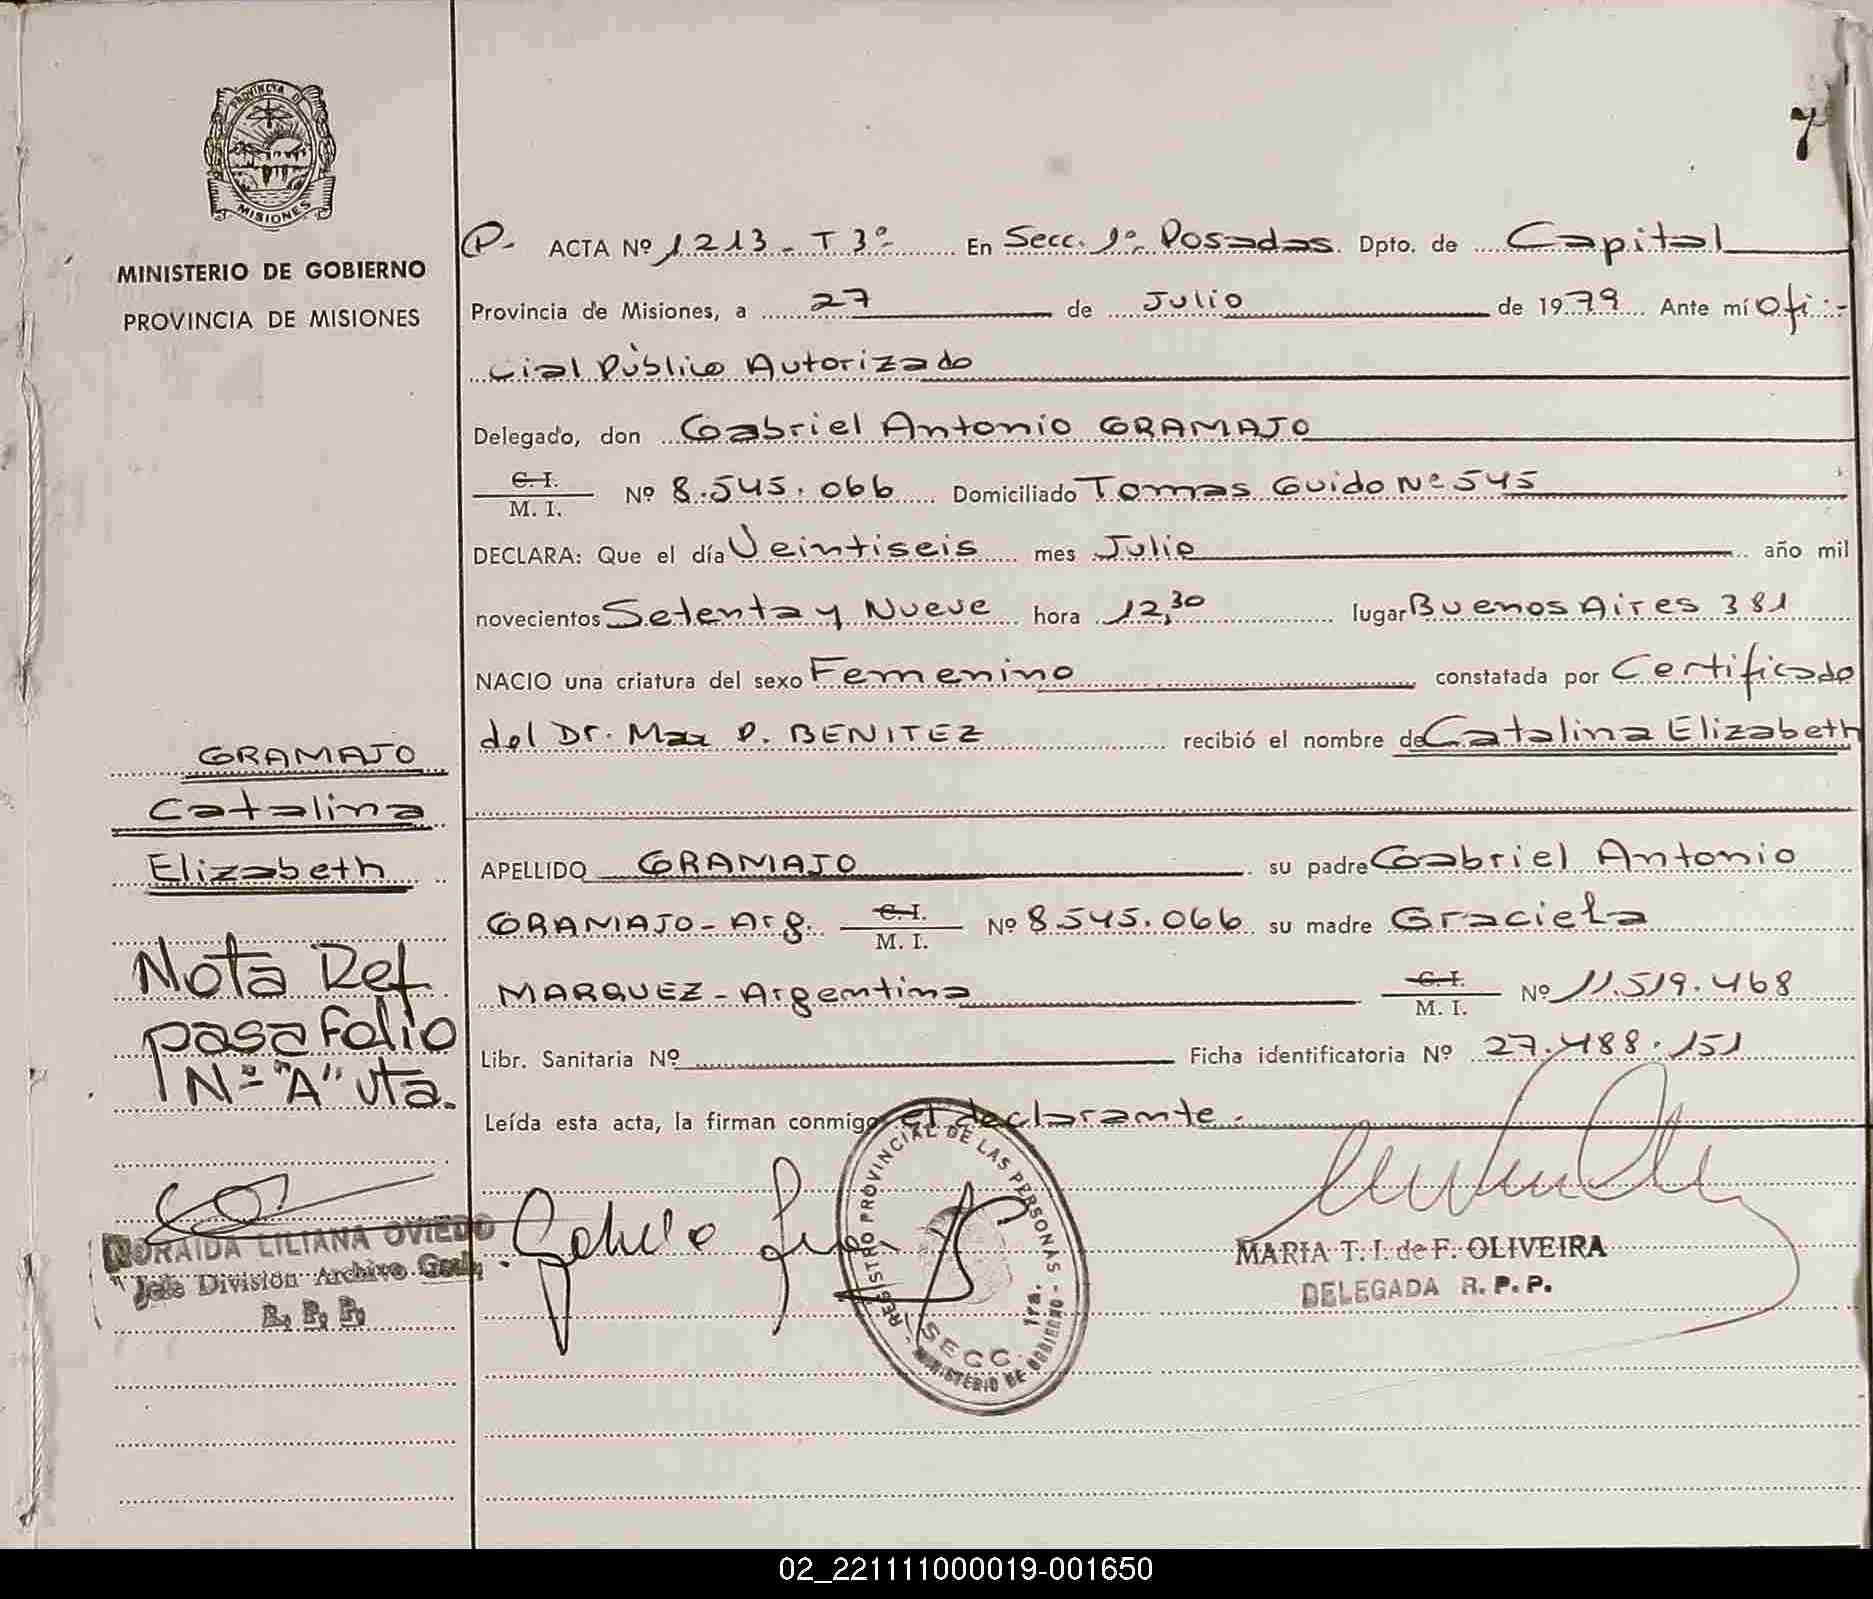 PROVINCIA DE
MISIONES
MINISTERIO DE GOBIERNO
PROVINCIA DE MISIONES
7
P- ACTA Nº 1213 - T 3º- En Secc. 1º Posadas. Dpto. de Capital
Provincia de Misiones, a 27 de Julio de 1979 Ante mí Ofi:-
cial Público Autorizado
Delegado, don Gabriel Antonio GRAMAJO
C. I.
M. I. Nº 8.545.066 Domiciliado Tomas Guido Nº 545
DECLARA: Que el día Veintiseis mes Julio año mil
novecientos Setenta y Nueve hora 12,30 lugar Buenos Aires 381
NACIO una criatura del sexo Femenino constatada por Certificado
del Dr. Max D. BENITEZ recibió el nombre de Catalina Elizabeth
APELLIDO GRAMAJO su padre Gabriel Antonio
GRAMAJO - Arg. C. I. M. I. Nº 8.545.066 su madre Graciela
MARQUEZ - Argentina C. I. M. I. Nº 11.519.468
Libr. Sanitaria Nº Ficha identificatoria Nº 27.488.151
Leída esta acta, la firman conmigo el declarante.-
GRAMAJO
Catalina
Elizabeth
Nota Ref
pasa folio
Nº "A" vta.
NORAIDA LILIANA OVIEDO
Jefe División Archivo Gral.
R. P. P.
REGISTRO PROVINCIAL DE LAS PERSONAS - MINISTERIO DE GOBIERNO -
1ra.
SECC.
MARIA T. I. de F. OLIVEIRA
DELEGADA R. P. P.
02_221111000019-001650